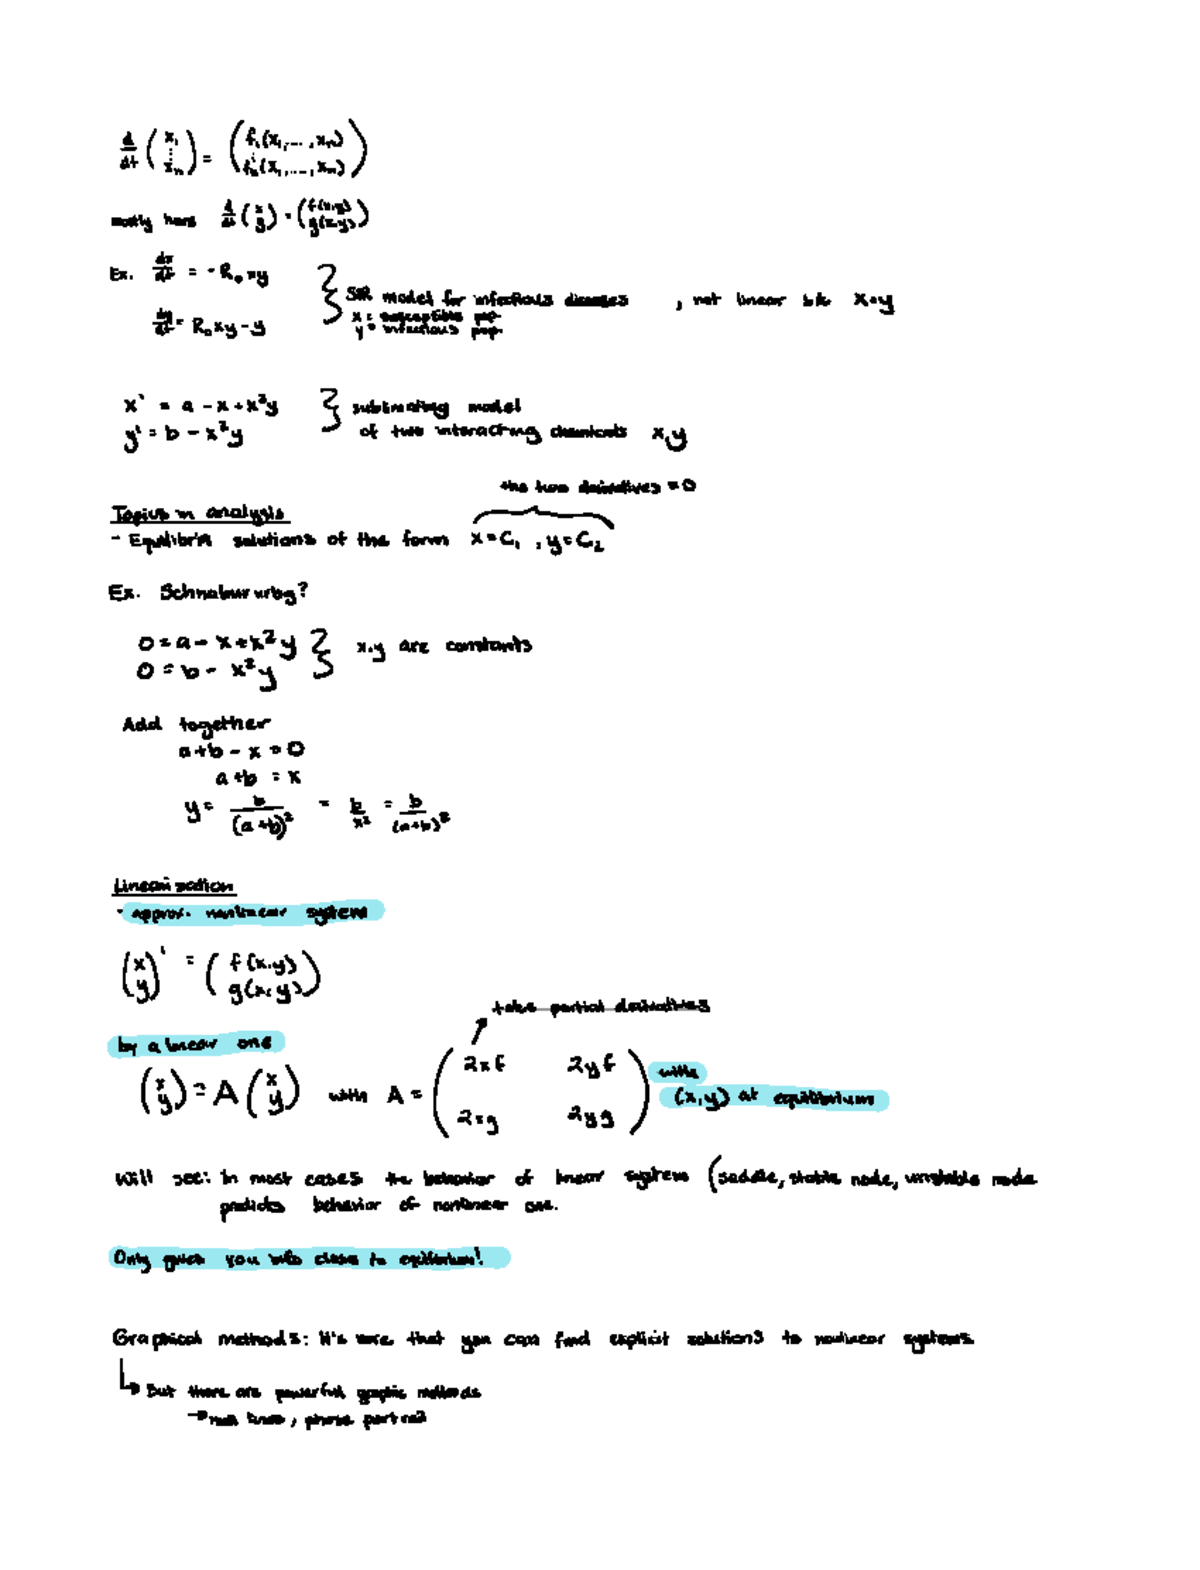 d/dt (x₁ ⋮ xₙ) = (f₁(x₁,...,xₙ) ⋮ fₙ(x₁,...,xₙ))
mostly here d/dt (x y) = (f(x,y) g(x,y))
Ex. dx/dt = -R₀xy
dy/dt = R₀xy - y
SIR model for infectious diseases , not linear b/c x·y
x = susceptible pop.
y = infectious pop.
x' = a - x + x²y
y' = b - x²y
model
of two interacting chemicals x,y
the two derivatives = 0
Topics in analysis
- Equilibria solutions of the form x = C₁ , y = C₂
Ex. Schnaburwbg?
0 = a - x + x²y
0 = b - x²y
x,y are constants
Add together
a+b - x = 0
a+b = x
y = b/(a+b)² = b/x² = b/(a+b)²
Linearization
- approx. nonlinear system
(x y)' = (f(x,y) g(x,y))
take partial derivatives
by a linear one
(x y) = A (x y) with A = (2xf 2yf 2xg 2yg) with
(x,y) at equilibrium
Will see: In most cases the behavior of linear system (saddle, stable node, unstable node
predicts behavior of nonlinear one.
Only gives you info close to equilibrium!
Graphical methods: It's rare that you can find explicit solutions to nonlinear systems
↳ But there are powerful graphic methods
→ null lines, phase portrait